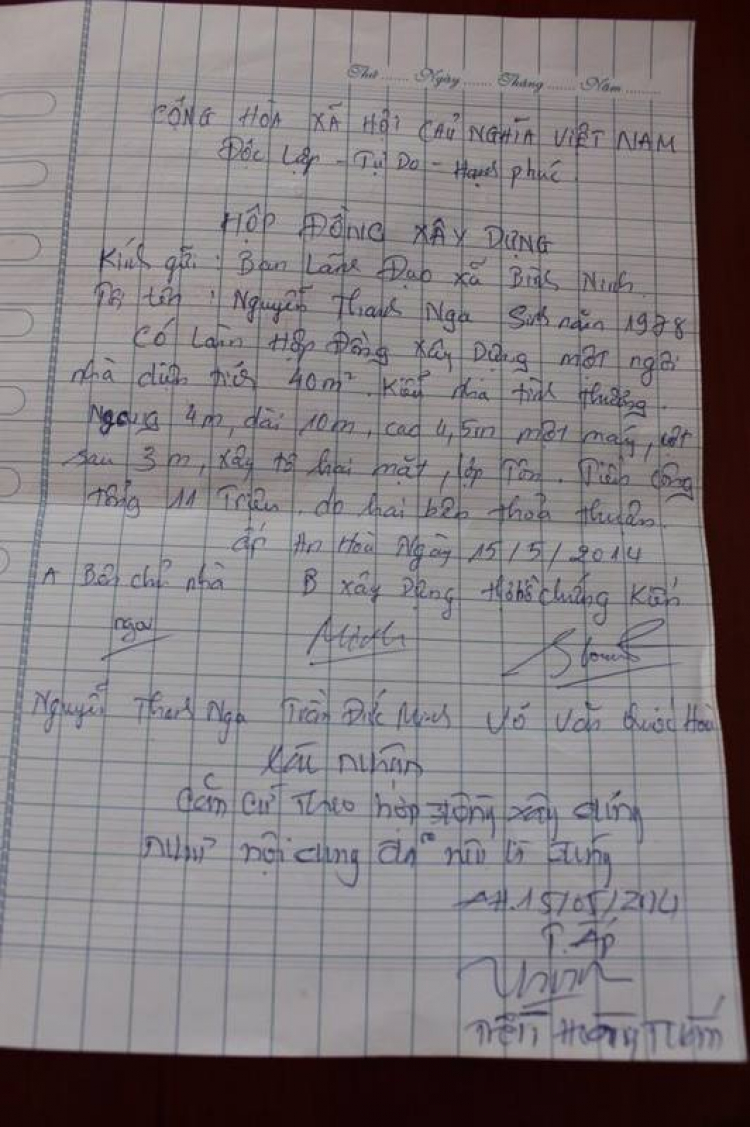 Thứ ...... Ngày ...... Tháng ...... Năm ........
CỘNG HÒA XÃ HỘI CHỦ NGHĨA VIỆT NAM
Độc Lập - Tự Do - Hạnh phúc
HỘP ĐỒNG XÂY DỰNG
Kính gửi : Ban Lãnh Đạo xã Bình Ninh
Tôi tên : Nguyễn Thanh Nga Sinh năm 1978
Có Làm Hộp Đồng Xây Dựng một ngôi
nhà diện tích 40m². Kiểu nhà tình thương.
Ngang 4m, dài 10m, cao 4,5m một máy, cột
sau 3m, xây tô hai mặt, lợp Tôn. Tiền công
tổng 11 Triệu. do hai bên thỏa thuận.
ấp An Hoà Ngày 15/5/2014
A Bên chủ nhà B Xây Dựng chứng Kiến
nga
Nguyễn Thanh Nga Trần Đức Minh Võ Văn Quốc Hoà
Xác nhận
Căn cứ Theo hợp đồng xây dựng
như nội dung đã nêu là đúng
AH.15/05/2014
T. Ấp
Hoàng